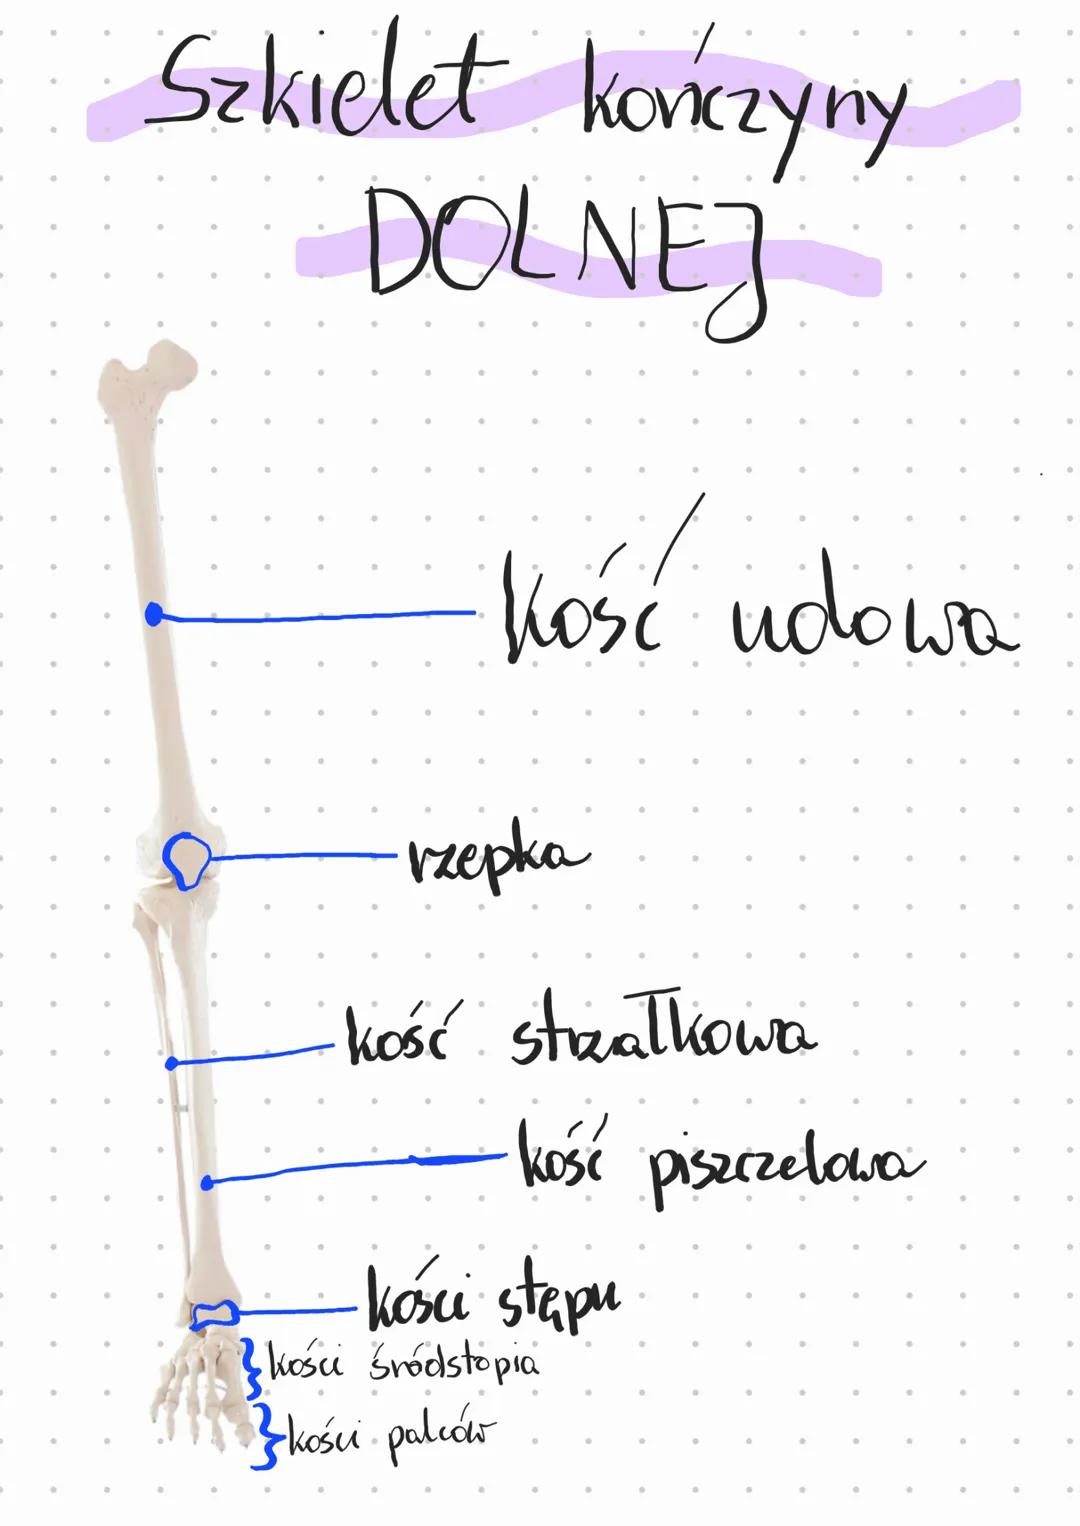 Szkielet kończyny
DOLNEJ
kość udowa
rzepka
kość strzałkowa
kość piszczelowa
kości stępu
kości śródstopia
kości palców